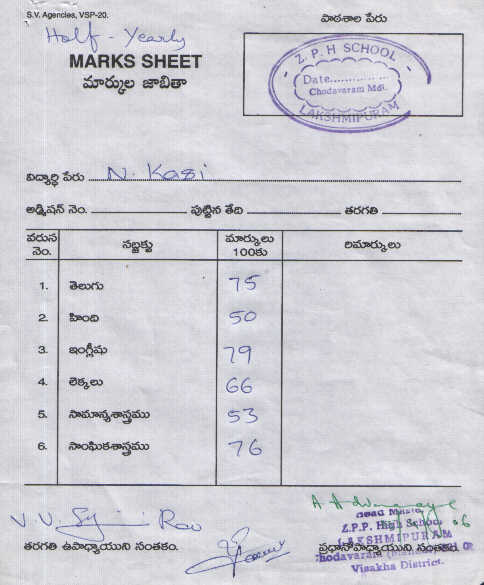 S.V. Agencies, VSP-20.
పాఠశాల పేరు
Half - Yearly
MARKS SHEET
మార్కుల జాబితా
Z. P. H SCHOOL
Date..............
Chodavaram Mdl.
LAKSHMIPURAM
విద్యార్థి పేరు N. Kasi
అడ్మిషన్ నెం. పుట్టిన తేది తరగతి
వరుస నెం. సబ్జక్టు మార్కులు 100కు రిమార్కులు
1. తెలుగు 75
2. హింది 50
3. ఇంగ్లీషు 79
4. లెక్కలు 66
5. సామాన్యశాస్త్రము 53
6. సాంఘికశాస్త్రము 76
V. V. Rao
Head Master
Z.P.P. High School
LAKSHMIPURAM
తరగతి ఉపాధ్యాయుని సంతకం. ప్రధానోపాధ్యాయుని సంతకం
Visakha District.